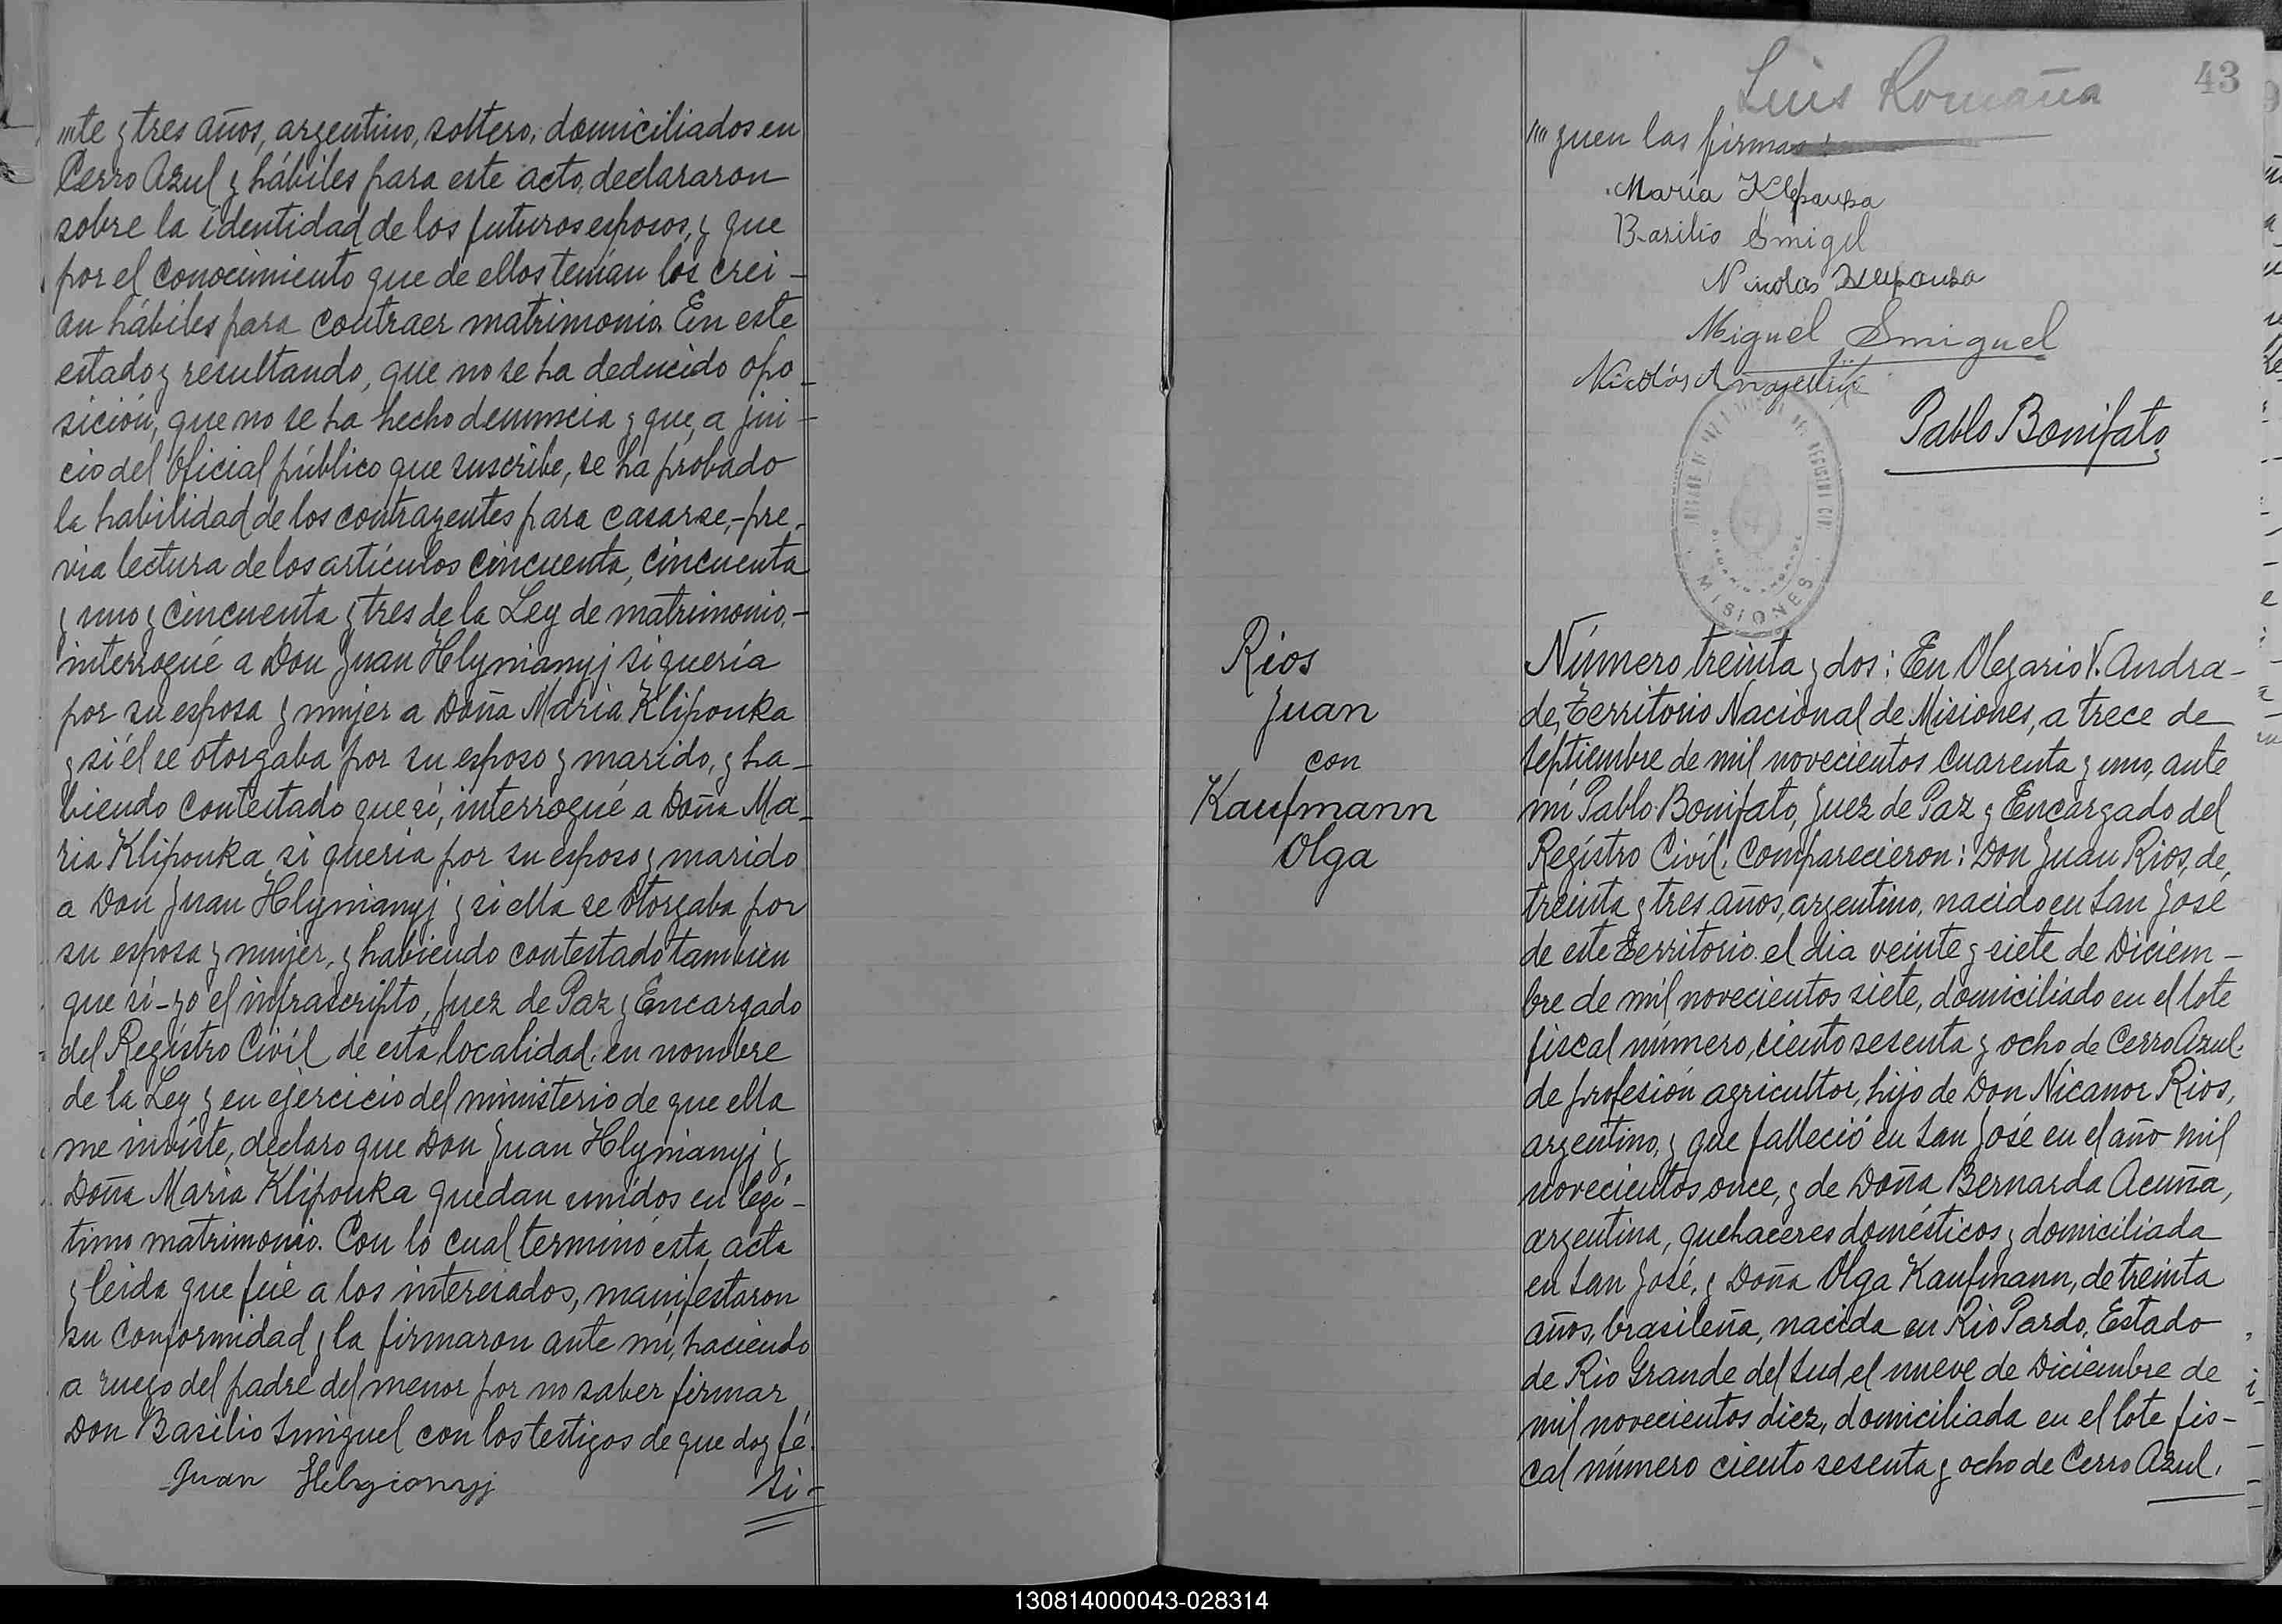 "'te y tres años, argentino, soltero, domiciliados en
Cerro Azul y hábiles para este acto, declararon
sobre la identidad de los futuros esposos, y que
por el conocimiento que de ellos tenían los crei-
an hábiles para contraer matrimonio. En este
estado y resultando, que no se ha deducido opo-
sición, que no se ha hecho denuncia y que, a jui-
cio del oficial público que suscribe, se ha probado
la habilidad de los contrayentes para casarse,-pre-
via lectura de los artículos cincuenta, cincuenta
y uno y cincuenta y tres de la Ley de matrimonio,-
interrogué a Don Juan Hlymianyj si quería
por su esposa y mujer a Doña María Kliponka
y si él se otorgaba por su esposo y marido, y ha-
biendo contestado que sí, interrogué a Doña Ma-
ria Kliponka si quería por su esposo y marido
a Don Juan Hlymianyj y si ella se otorgaba por
su esposa y mujer, y habiendo contestado tambien
que sí-yo el infrascripto, Juez de Paz y Encargado
del Registro Civil de esta localidad, en nombre
de la Ley y en ejercicio del ministerio de que ella
me inviste, declaro que Don Juan Hlymianyj y
Doña María Kliponka quedan unidos en legí-
timo matrimonio. Con lo cual terminó esta acta
y leida que fué a los interesados, manifestaron
su conformidad y la firmaron ante mí, haciendo
a ruego del padre del menor por no saber firmar
Don Basilio Smiguel con los testigos de que doy fé.
Juan
Si-
Luis Romaña
43
"'guen las firmas:
María
Basilio Smigel
Nicolas
Miguel Smiguel
Nicolás
Pablo Bonifato
MISIONES
Rios
Juan
con
Kaufmann
Olga
Número treinta y dos: En Olegario V. Andra-
de, Territorio Nacional de Misiones, a trece de
Septiembre de mil novecientos cuarenta y uno, ante
mí Pablo Bonifato, Juez de Paz y Encargado del
Registro Civil, comparecieron: Don Juan Rios, de
treinta y tres años, argentino, nacido en San José
de este Territorio el dia veinte y siete de Diciem-
bre de mil novecientos siete, domiciliado en el lote
fiscal número, ciento sesenta y ocho de Cerro Azul.
de profesión agricultor, hijo de Don Nicanor Rios,
argentino, y que falleció en San José en el año mil
novecientos once, y de Doña Bernarda Acuña,
argentina, quehaceres domésticos y domiciliada
en San José, y Doña Olga Kaufmann, de treinta
años, brasileña, nacida en Rio Pardo, Estado
de Rio Grande del Sud el nueve de Diciembre de
mil novecientos diez, domiciliada en el lote fis-
cal número ciento sesenta y ocho de Cerro Azul,
130814000043-028314